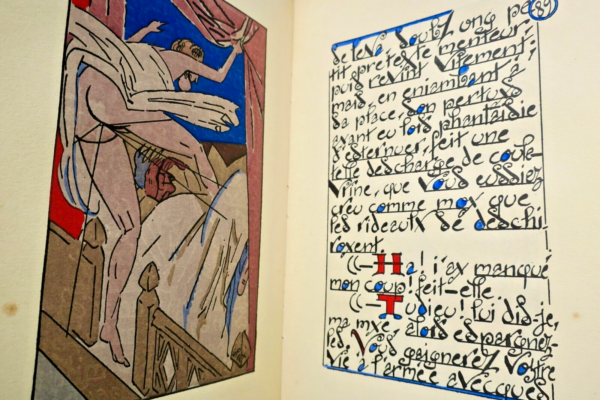 89
se leva, soubz ung pe
tit pretexte menteur;
puis revint vitement;
mais, en enjambant à
sa place, son pertuys
ayant eu lors phantaisie
d'esternuer, feit une
telle descharge de coule-
vrine, que vous eussiez
creu comme moy que
les rideaulx se deschi-
royent.
— Ha! i'ay manqué
mon coup! feit-elle.
— Tudieu! lui dis-je,
ma mye, alors espargnez-
les. Vous gaignerez vostre
vie à l'armée avecques